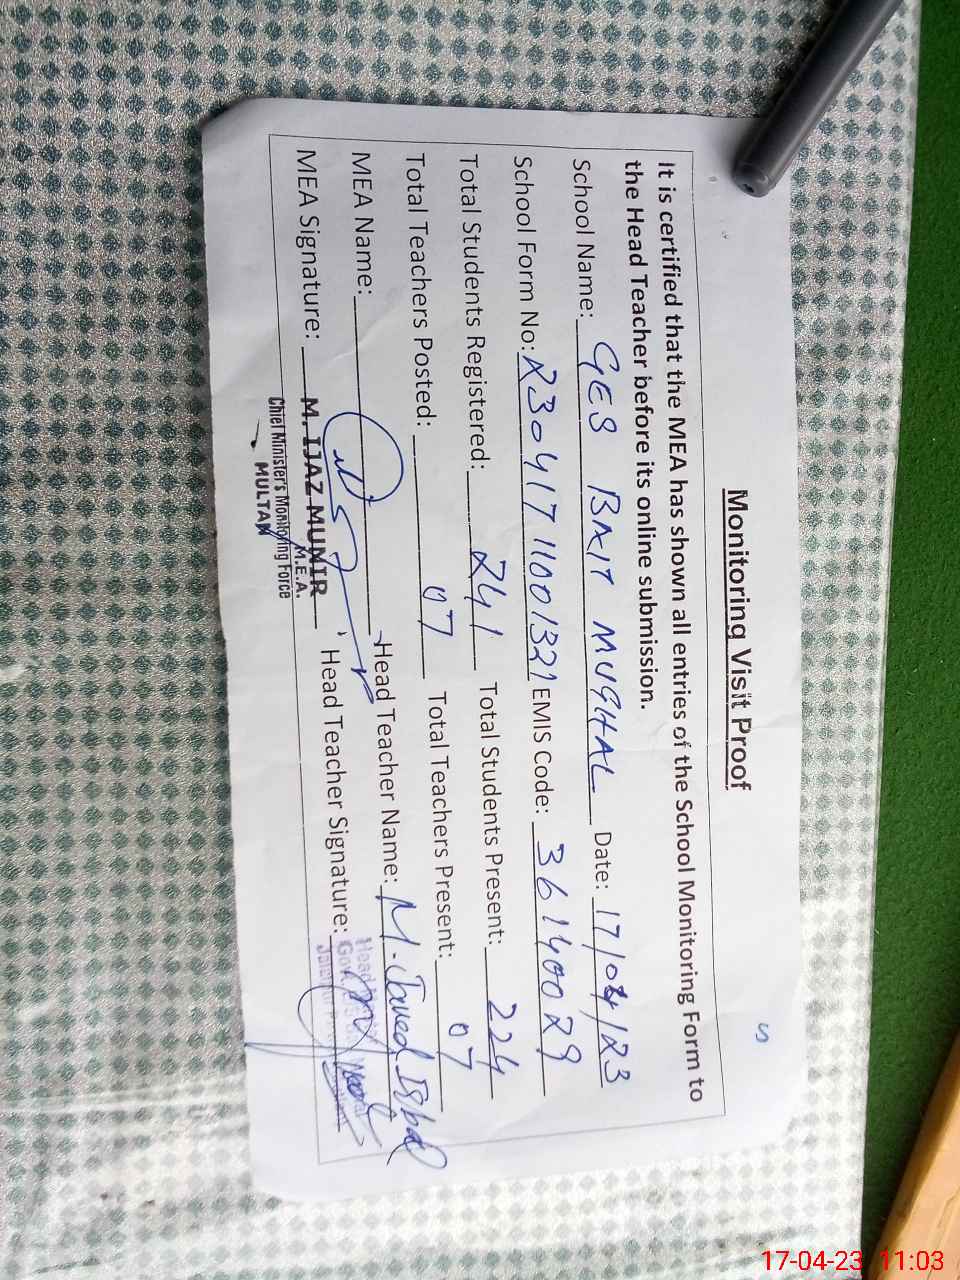 S
Monitoring Visit Proof
It is certified that the MEA has shown all entries of the School Monitoring Form to
the Head Teacher before its online submission.
School Name: GES BAIT MUGHAL Date: 17/04/23
School Form No: 230417 11001321 EMIS Code: 36140029
Total Students Registered: 241 Total Students Present: 224
Total Teachers Posted: 07 Total Teachers Present: 07
MEA Name: Head Teacher Name: M. Javed Iqbal
MEA Signature: Head Teacher Signature:
M. IJAZ MUNIR
M.E.A.
Chief Minister's Monitoring Force
MULTAN
17-04-23 11:03